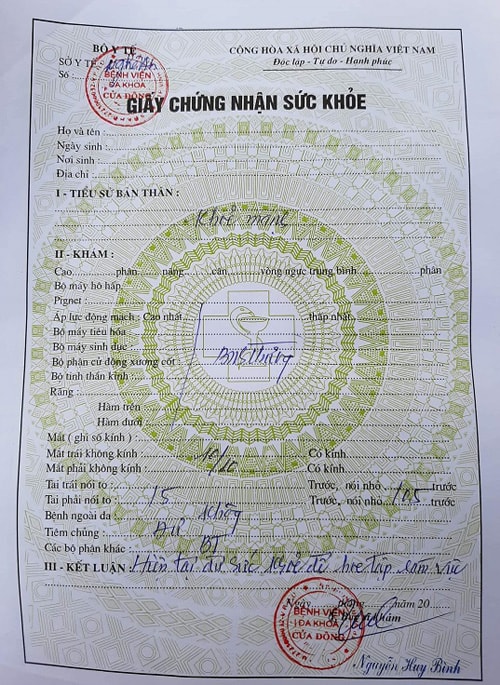 BỘ Y TẾ
CỘNG HÒA XÃ HỘI CHỦ NGHĨA VIỆT NAM
SỞ Y TẾ Nghệ An
Độc lập - Tự do - Hạnh phúc
Số
BỆNH VIỆN
ĐA KHOA
CỬA ĐÔNG
GIẤY CHỨNG NHẬN SỨC KHỎE
Họ và tên :
Ngày sinh :
Nơi sinh :
Địa chỉ :
I - TIỂU SỬ BẢN THÂN :
Khoẻ mạnh
II - KHÁM :
Cao phân nặng cân vòng ngực trung bình phân
Bộ máy hô hấp
Pignet :
Áp lực động mạch : Cao nhất thấp nhất
Bộ máy tiêu hóa
Bộ máy sinh dục :
Bình thường
Bộ phận cử động xương cốt
Bộ tinh thần kinh :
Răng :
Hàm trên
Hàm dưới
Mắt ( ghi số kính ) :
Mắt trái không kính : 10/10 Có kính
Mắt phải không kính : Có kính
Tai trái nói to : Trước, nói nhỏ trước
Tai phải nói to : 15 Trước, nói nhỏ 0,5 trước
Bệnh ngoài da không
Tiêm chủng : Đủ
Các bộ phận khác : BT
III - KẾT LUẬN : Hiện tại đủ sức khoẻ để học tập làm việc
Ngày tháng năm 20
BỆNH VIỆN
ĐA KHOA
CỬA ĐÔNG
Nguyễn Huy Bình